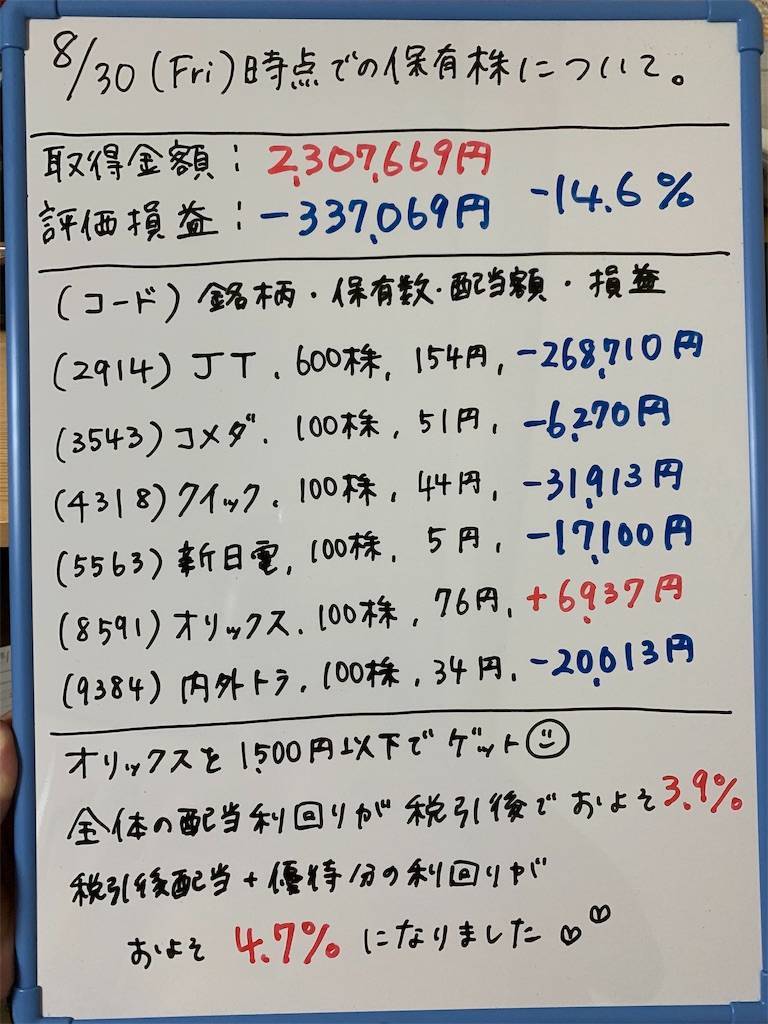 8/30(Fri)時点での保有株について。
取得金額：2,307,669円
評価損益：-337,069円 -14.6%
(コード) 銘柄・保有数・配当額・損益
(2914) JT、600株、154円、-268,710円
(3543) コメダ、100株、51円、-6,270円
(4318) クイック、100株、44円、-31,913円
(5563) 新日電、100株、5円、-17,100円
(8591) オリックス、100株、76円、+6,937円
(9384) 内外トラ、100株、34円、-20,013円
オリックスを1,500円以下でゲット☺
全体の配当利回りが税引後でおよそ3.9%
税引後配当+優待分の利回りが
およそ4.7%になりました♡♡